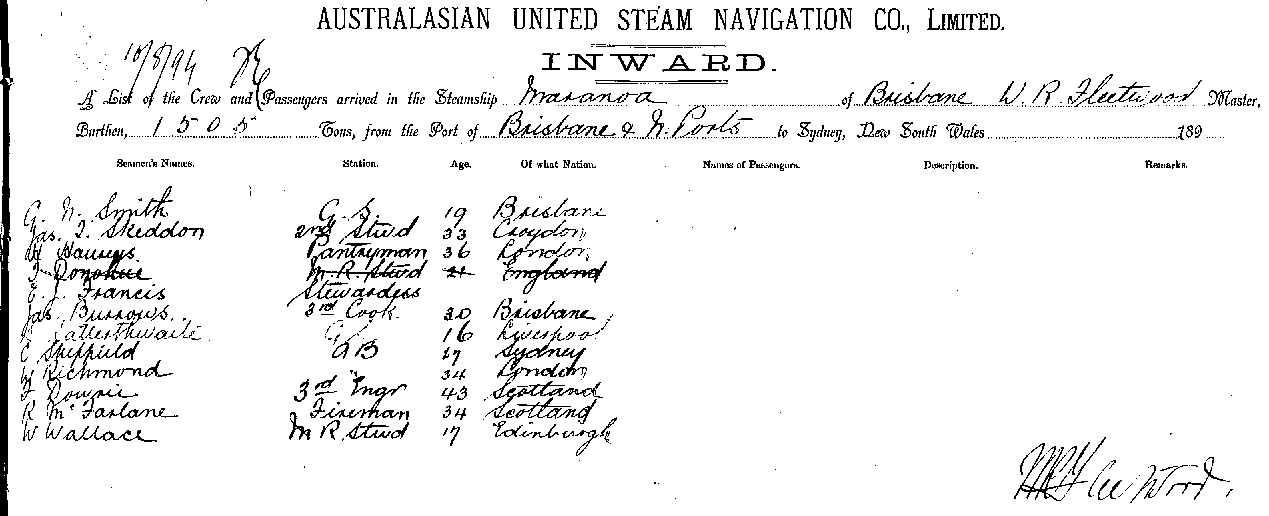 AUSTRALASIAN UNITED STEAM NAVIGATION CO., LIMITED.
10/8/94
INWARD.
A List of the Crew and Passengers arrived in the Steamship Maranoa of Brisbane W. R. Fleetwood Master,
Burthen, 1505 Tons, from the Port of Brisbane & N. Ports to Sydney, New South Wales 189
Seamen's Names. Station. Age. Of what Nation. Names of Passengers. Description. Remarks.
G. N. Smith G. S. 19 Brisbane
Jas. Skeddon 2nd Stwd 33 Croydon
Pantryman 36 London
Donohue M. R. Stwd 21 England
E. J. Francis Stewardess
Jas. Burrows 3rd Cook 30 Brisbane
Satterthwaite G 16 Liverpool
C Sheffield AB Sydney
W Richmond " 34 London
Downie 3rd Engr 43 Scotland
R McFarlane Fireman 34 Scotland
W Wallace M R. Stwd 17 Edinburgh